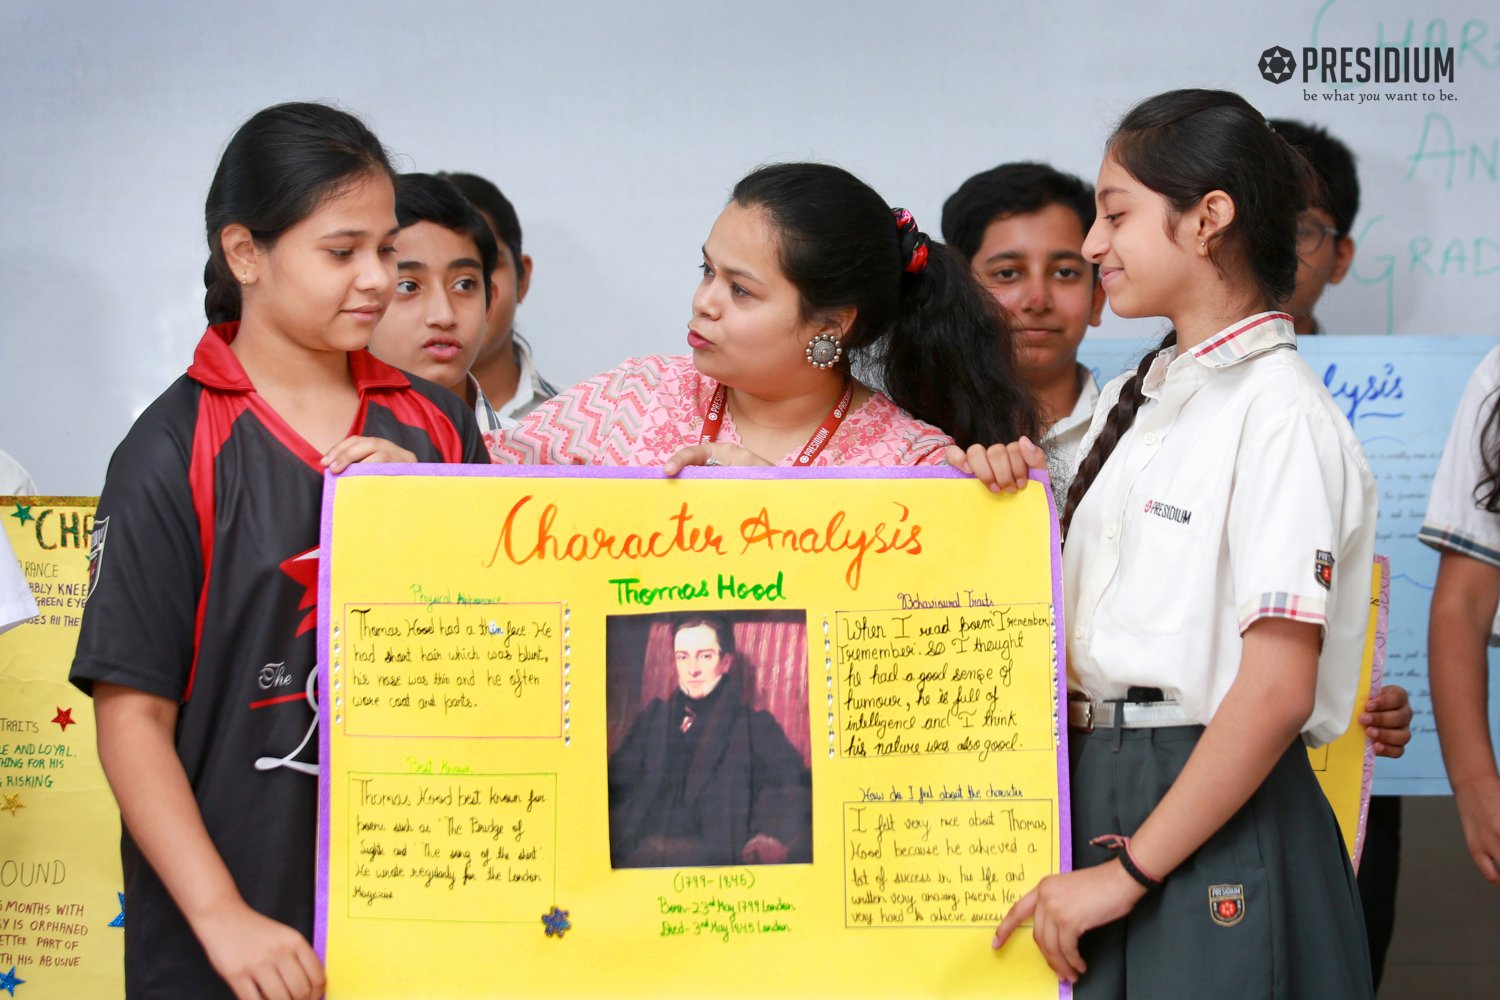 PRESIDIUM
be what you want to be.
CHAR
AN
GRAD
lysis
CHA
RANCE
BBLY KNEE
GREEN EYE
SSES All THE
TRAITS
LE AND LOYAL,
THING FOR HIS
RISKING
OUND
5 MONTHS WITH
RY IS ORPHANED
ETTER PART OF
TH HIS ABUSIVE
PRESIDIUM
PRESIDIUM
The
Character Analysis
Thomas Hood
Physical
Thomas Hood had a thin face. He
had short hair which was blunt,
his nose was thin and he often
wore coat and pants.
Best Known
Thomas Hood best known for
poem such as "The Bridge of
Sighs and "The song of the shirt"
He wrote regularly for the London
Magazine
(1799-1845)
Born- 23rd May 1799 London
Died- 3rd May 1845 London
Behavioural Traits
When I read poem "I remember,
I remember". SO I thought
he had a good sense of
humour, he is full of
intelligence and I think
his nature was also good.
How do I feel about the character
I felt very nice about Thomas
Hood because he achieved a
lot of success in his life and
written very amazing poems He
very hard to achieve success
PRESIDIUM
PRESIDIUM